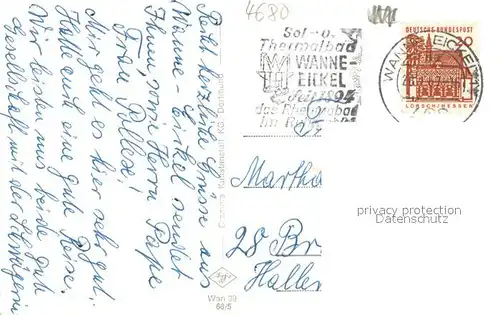 4680
Recht herzliche Grüsse aus
Wanne-Eickel sendet
Ihnen, sowie Herrn Pape
Frau
Mir geht es hier sehr gut.
Hatte auch eine gute Reise.
Wir leisten uns beide gute
Gesellschaft mit der Schwägerin
Cramers Kunstanstalt KG, Dortmund
Wan 39
68/5
Sol- u.
Thermalbad
WANNE-
EICKEL
Seit 1894
das Thermalbad
im
WANNE-EICKEL
DEUTSCHE BUNDESPOST
20
LORSCH/HESSEN
Martha
28 Br
Haller
privacy protection
Datenschutz